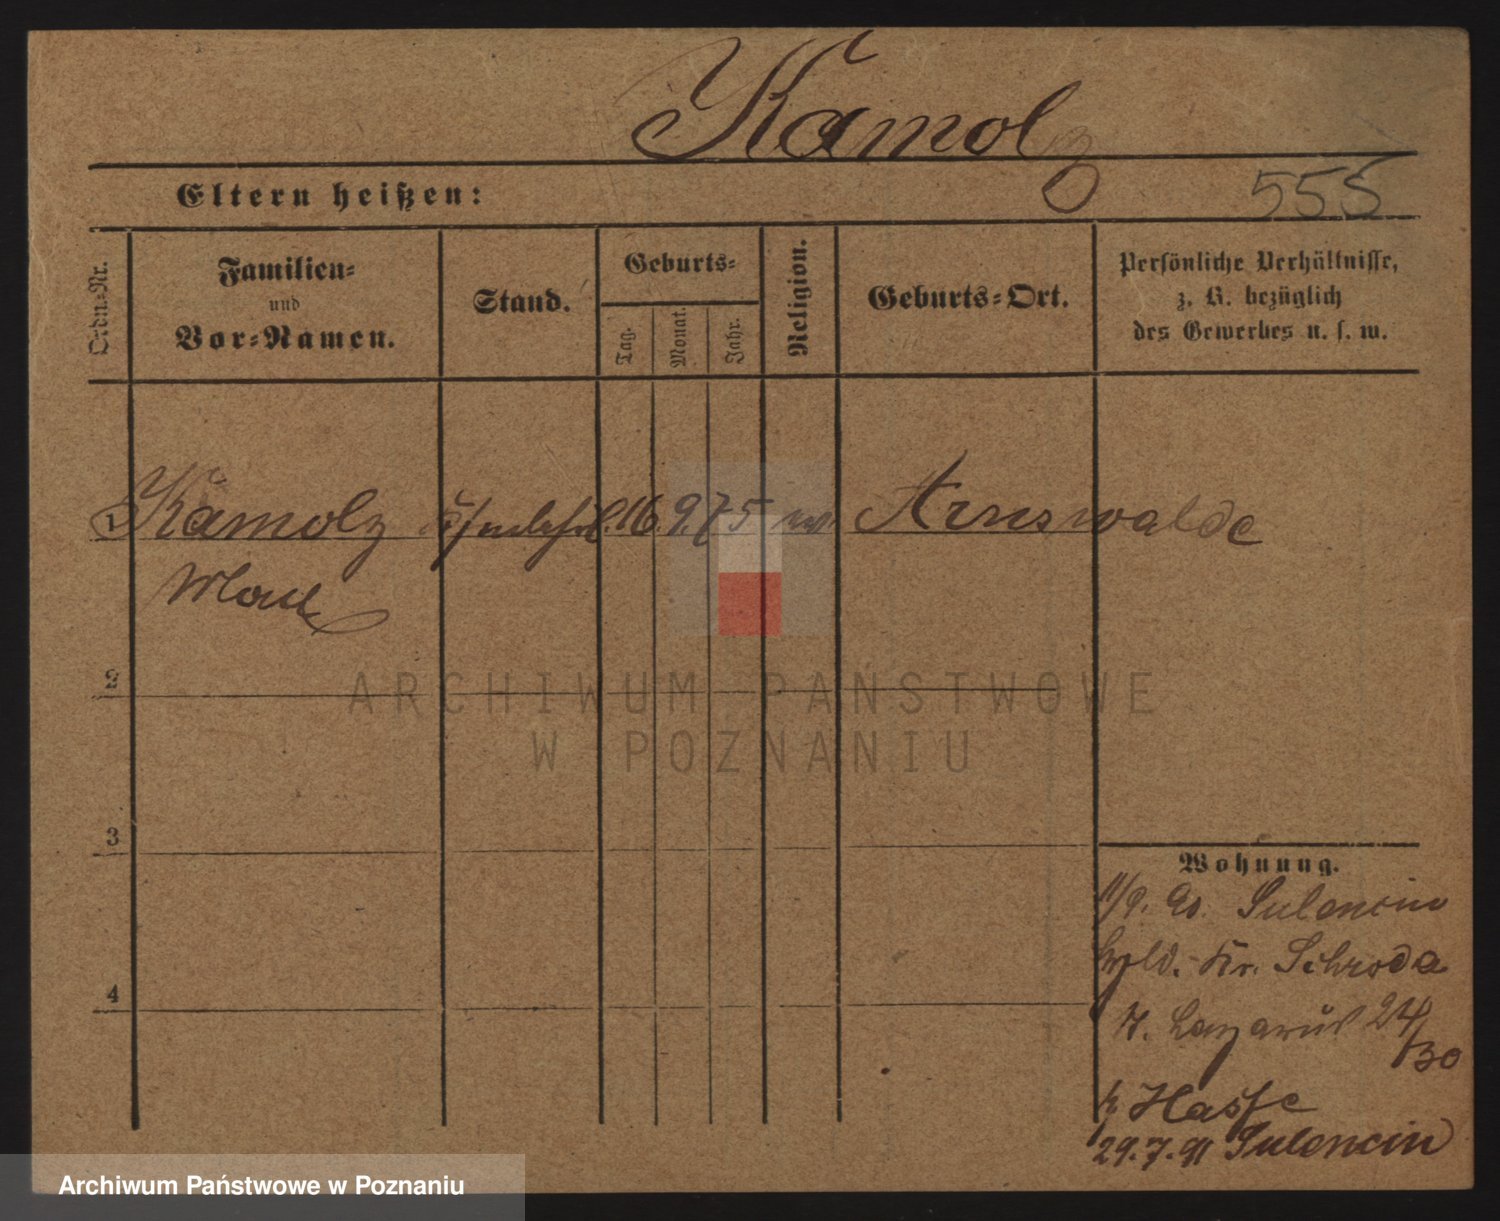 Kamolz
Eltern heißen:
555
Ordn-Nr.
Familien-
und
Vor-Namen.
Stand.
Geburts-
Tag.
Monat.
Jahr.
Religion.
Geburts-Ort.
Persönliche Verhältnisse,
z. B. bezüglich
des Gewerbes u. s. w.
1 Kamolz 16. 9. 75 ev. Arnswalde
2
ARCHIWUM PAŃSTWOWE
W POZNANIU
3
Wohnung.
11/9. 90. Sulencin
Kr. Schroda
4
St. Lazarus 24/30
b. Hasse
29.7.91 Sulencin
Archiwum Państwowe w Poznaniu